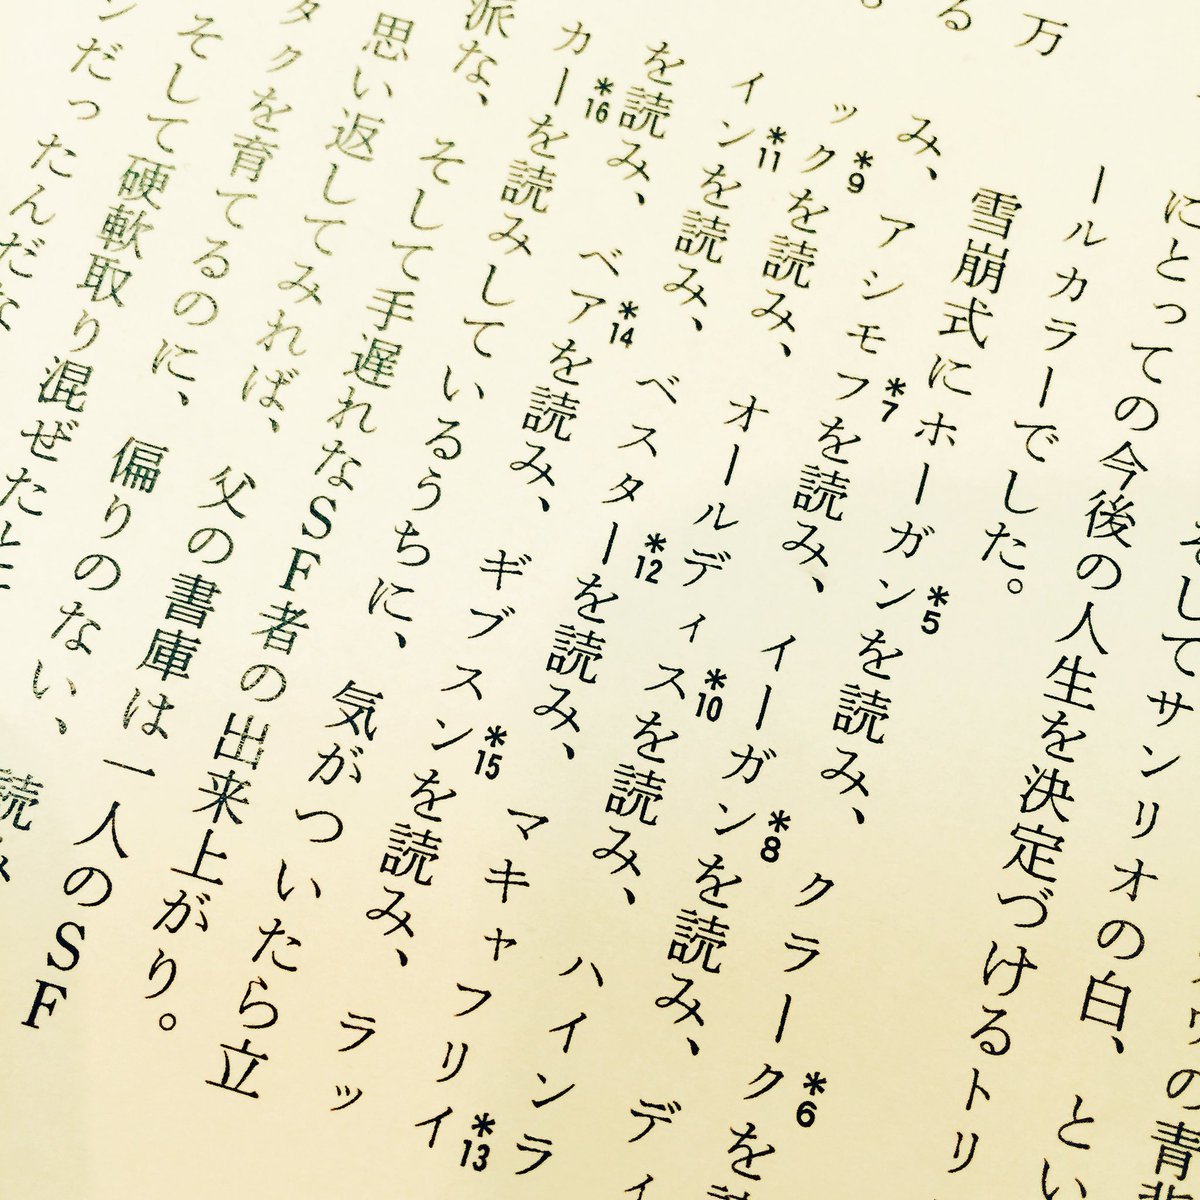 万
る
の青背
そしてサンリオの白、とい
にとっての今後の人生を決定づけるトリ
ールカラーでした。
雪崩式にホーガン*5を読み、クラーク*6を読
み、アシモフ*7を読み、イーガン*8を読み、ディ
ック*9を読み、オールディス*10を読み、ハインラ
イン*11を読み、ベスター*12を読み、マキャフリイ*13
を読み、ベア*14を読み、ギブスン*15を読み、ラッ
カー*16を読みしているうちに、気がついたら立
派な、そして手遅れなSF者の出来上がり。
思い返してみれば、父の書庫は一人のSF
タクを育てるのに、偏りのない、読み
そして硬軟取り混ぜた
ンだったんだな